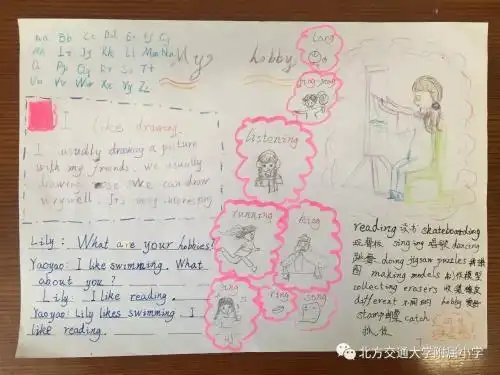 Aa Bb Cc Dd Ee Ff Gg
Hh Ii Jj Kk Ll Mm Nn
Oo Pp Qq Rr Ss Tt
Uu Vv Ww Xx Yy Zz
My hobby
I like drawing.
I usually drawing a picture
with my friends. We usually
drawing We can draw
very well. It's very interesting
Lily: What are your hobbies?
Yaoyao: I like swimming. What
about you?
Lily: I like reading.
Yaoyao: Lily likes swimming. I
like reading.
ping-pong
listening
running
sing
song
reading 读书 skateboarding
玩滑板 singing 唱歌 dancing
跳舞 doing jigsaw puzzles 拼拼
图 making models 制作模型
collecting erasers 收集橡皮
different 不同的 hobby 爱好
stamp 邮票 catch
抓住
北方交通大学附属小学